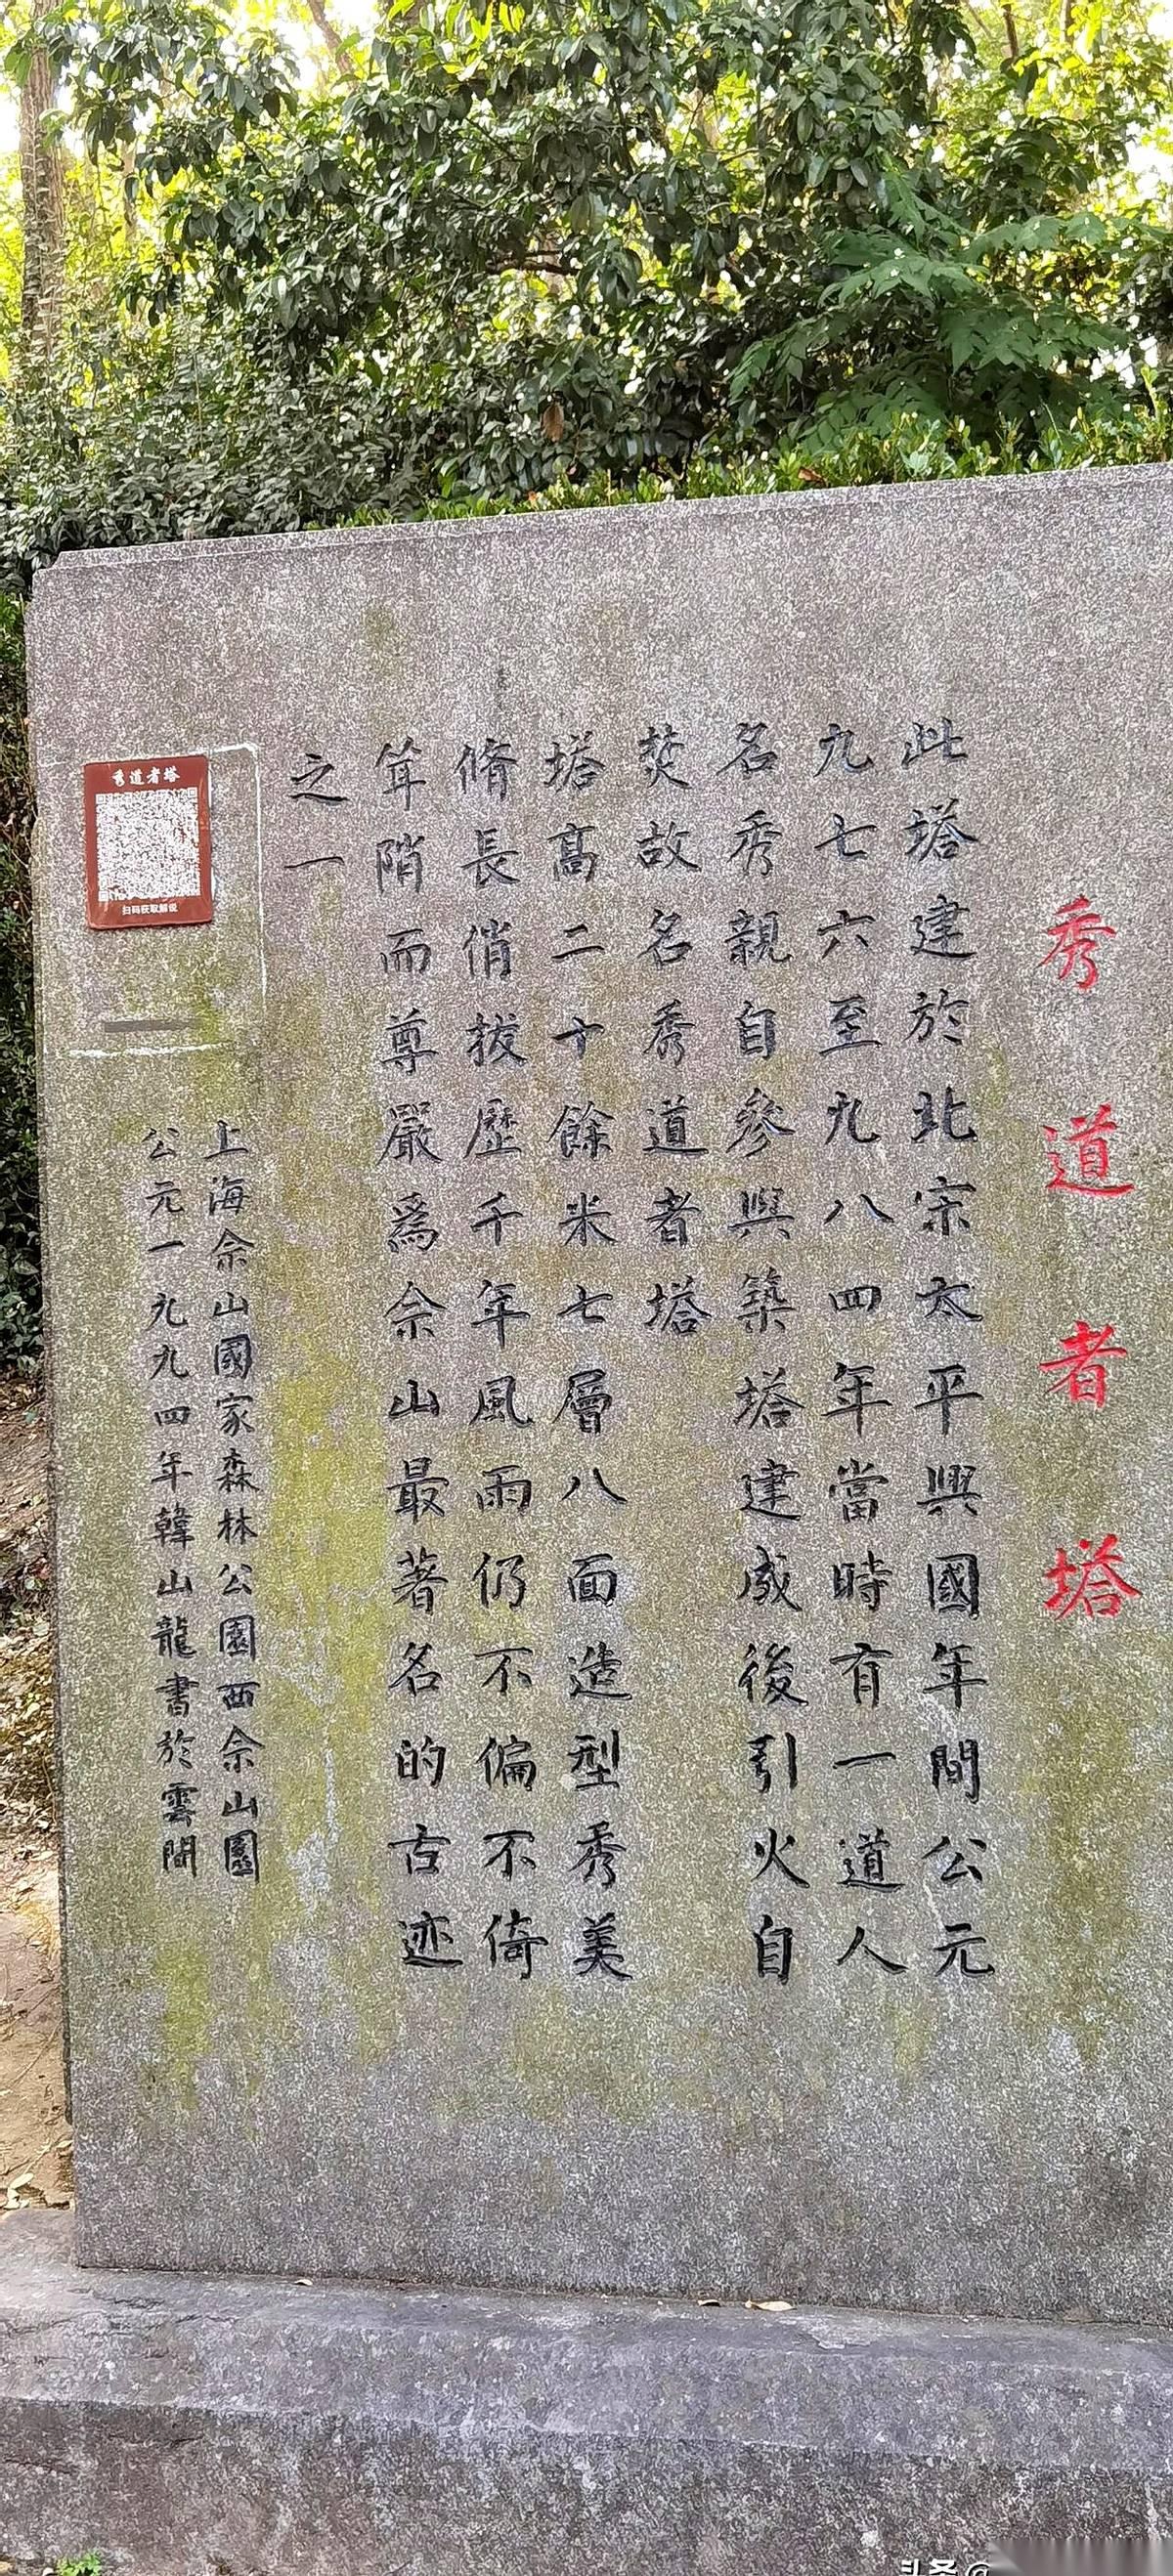 秀道者塔
此塔建於北宗太平興國年間公元
九七六至九八四年當時有一道人
名秀親自參與築塔建成後引火自
焚故名秀道者塔
塔高二十餘米七層八面造型秀美
脩長俏拔歷千年風雨仍不偏不倚
耸陗而尊嚴爲佘山最著名的古迹
之一
上海佘山國家森林公園西佘山園
公元一九九四年韓山龍書於雲間
秀道者塔
扫码获取解说
头条@